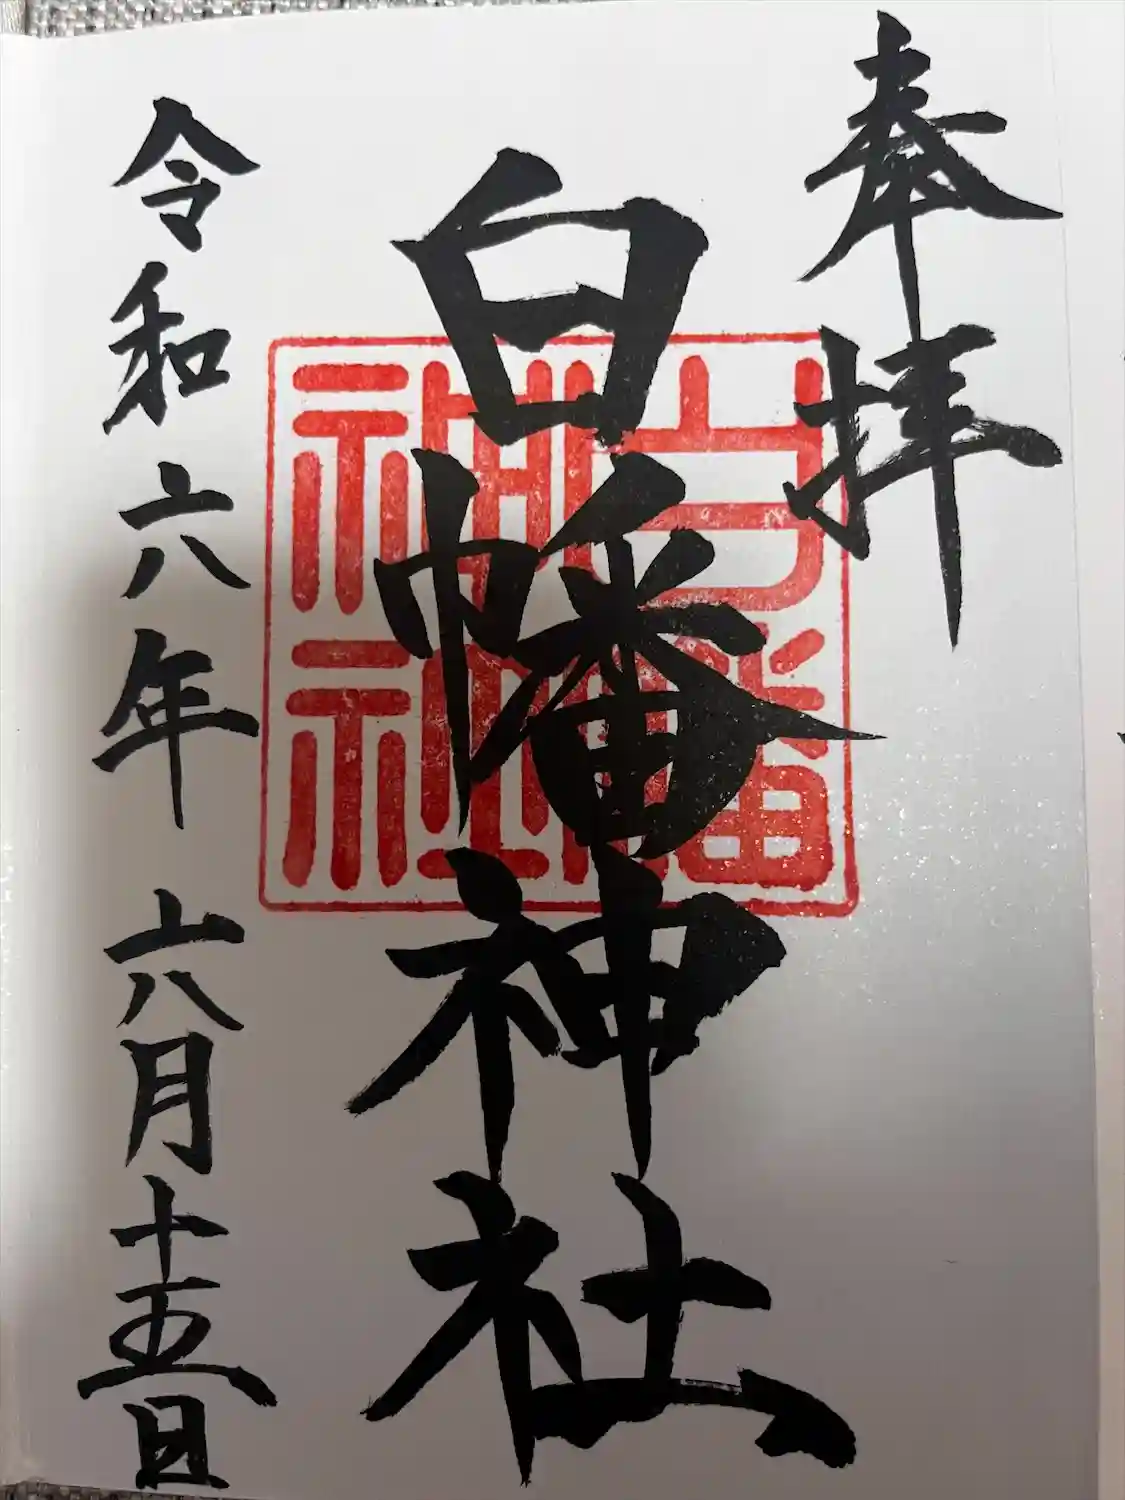 奉拝
白幡神社
白幡
神社
令和六年 六月十五日